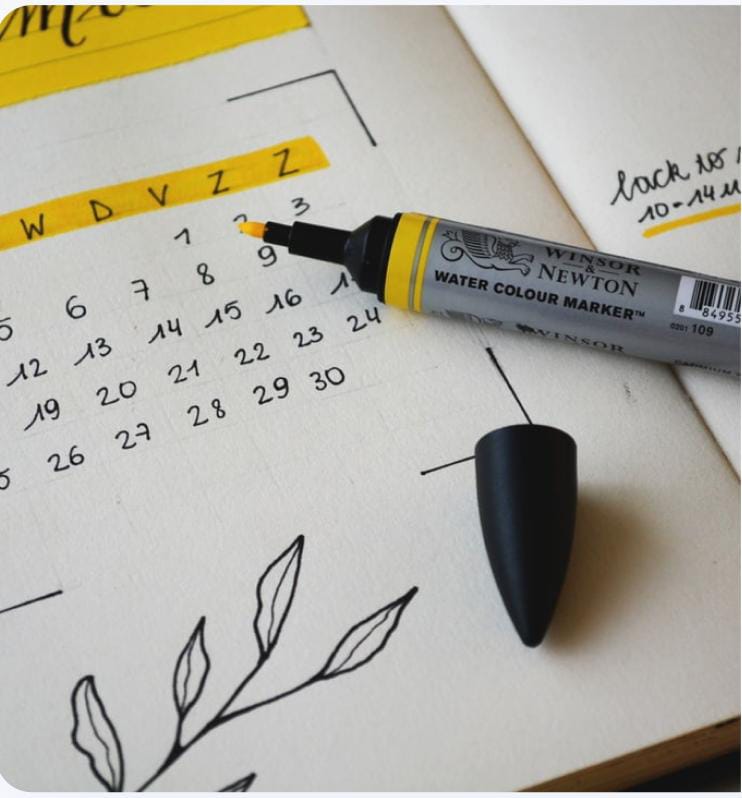 W D V Z Z
1 2 3
5 6 7 8 9
12 13 14 15 16
19 20 21 22 23 24
26 27 28 29 30
back to
10-14
WINSOR
&
NEWTON
WATER COLOUR MARKER™
WINSOR
8 84955
0201 109